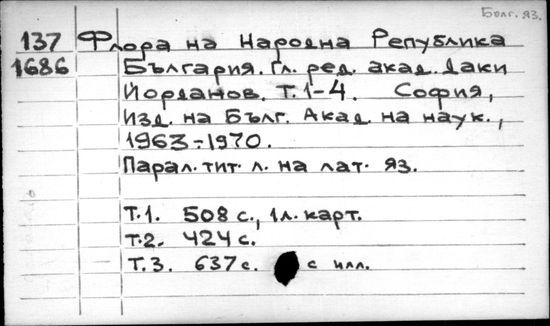 Болг. яз.
137 Флора на Народна Република
1686 България. Гл. ред. акад. Даки
Йорданов. Т. 1-4. София,
Изд. на Бълг. Акад. на наук.,
1963-1970.
Парал. тит. л. на лат. яз.
Т.1. 508 с., 1 л. карт.
Т.2. 424 с.
Т.3. 637 с. с илл.